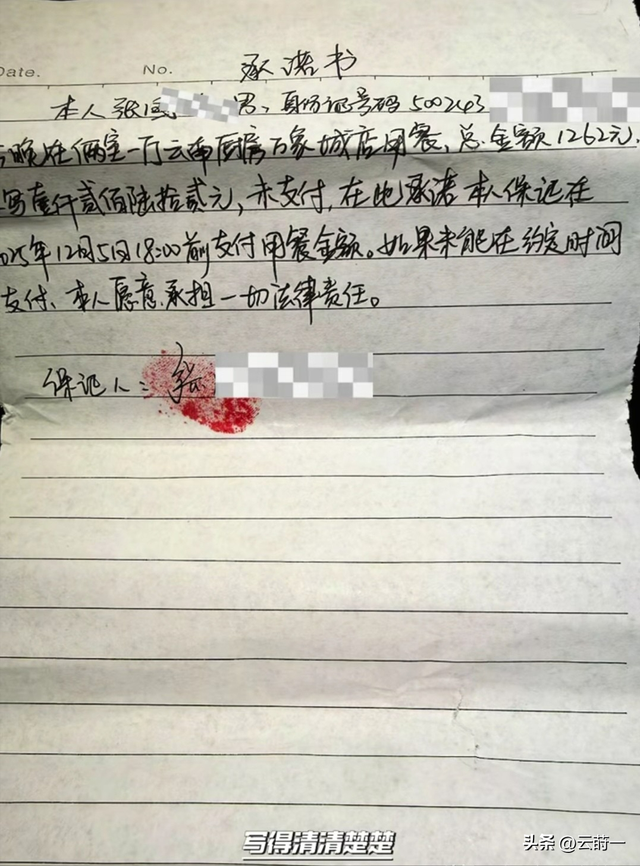 Date. No. 承诺书
本人张 男、身份证号码500243
晚在俩室一厅云南厨房万象城店用餐，总金额1262元，
写壹仟贰佰陆拾贰元，未支付，在此承诺本人保证在
025年12月5日18:00前支付用餐金额。如果未能在约定时间
支付、本人愿意承担一切法律责任。
保证人：张
写得清清楚楚
头条 @云莳一